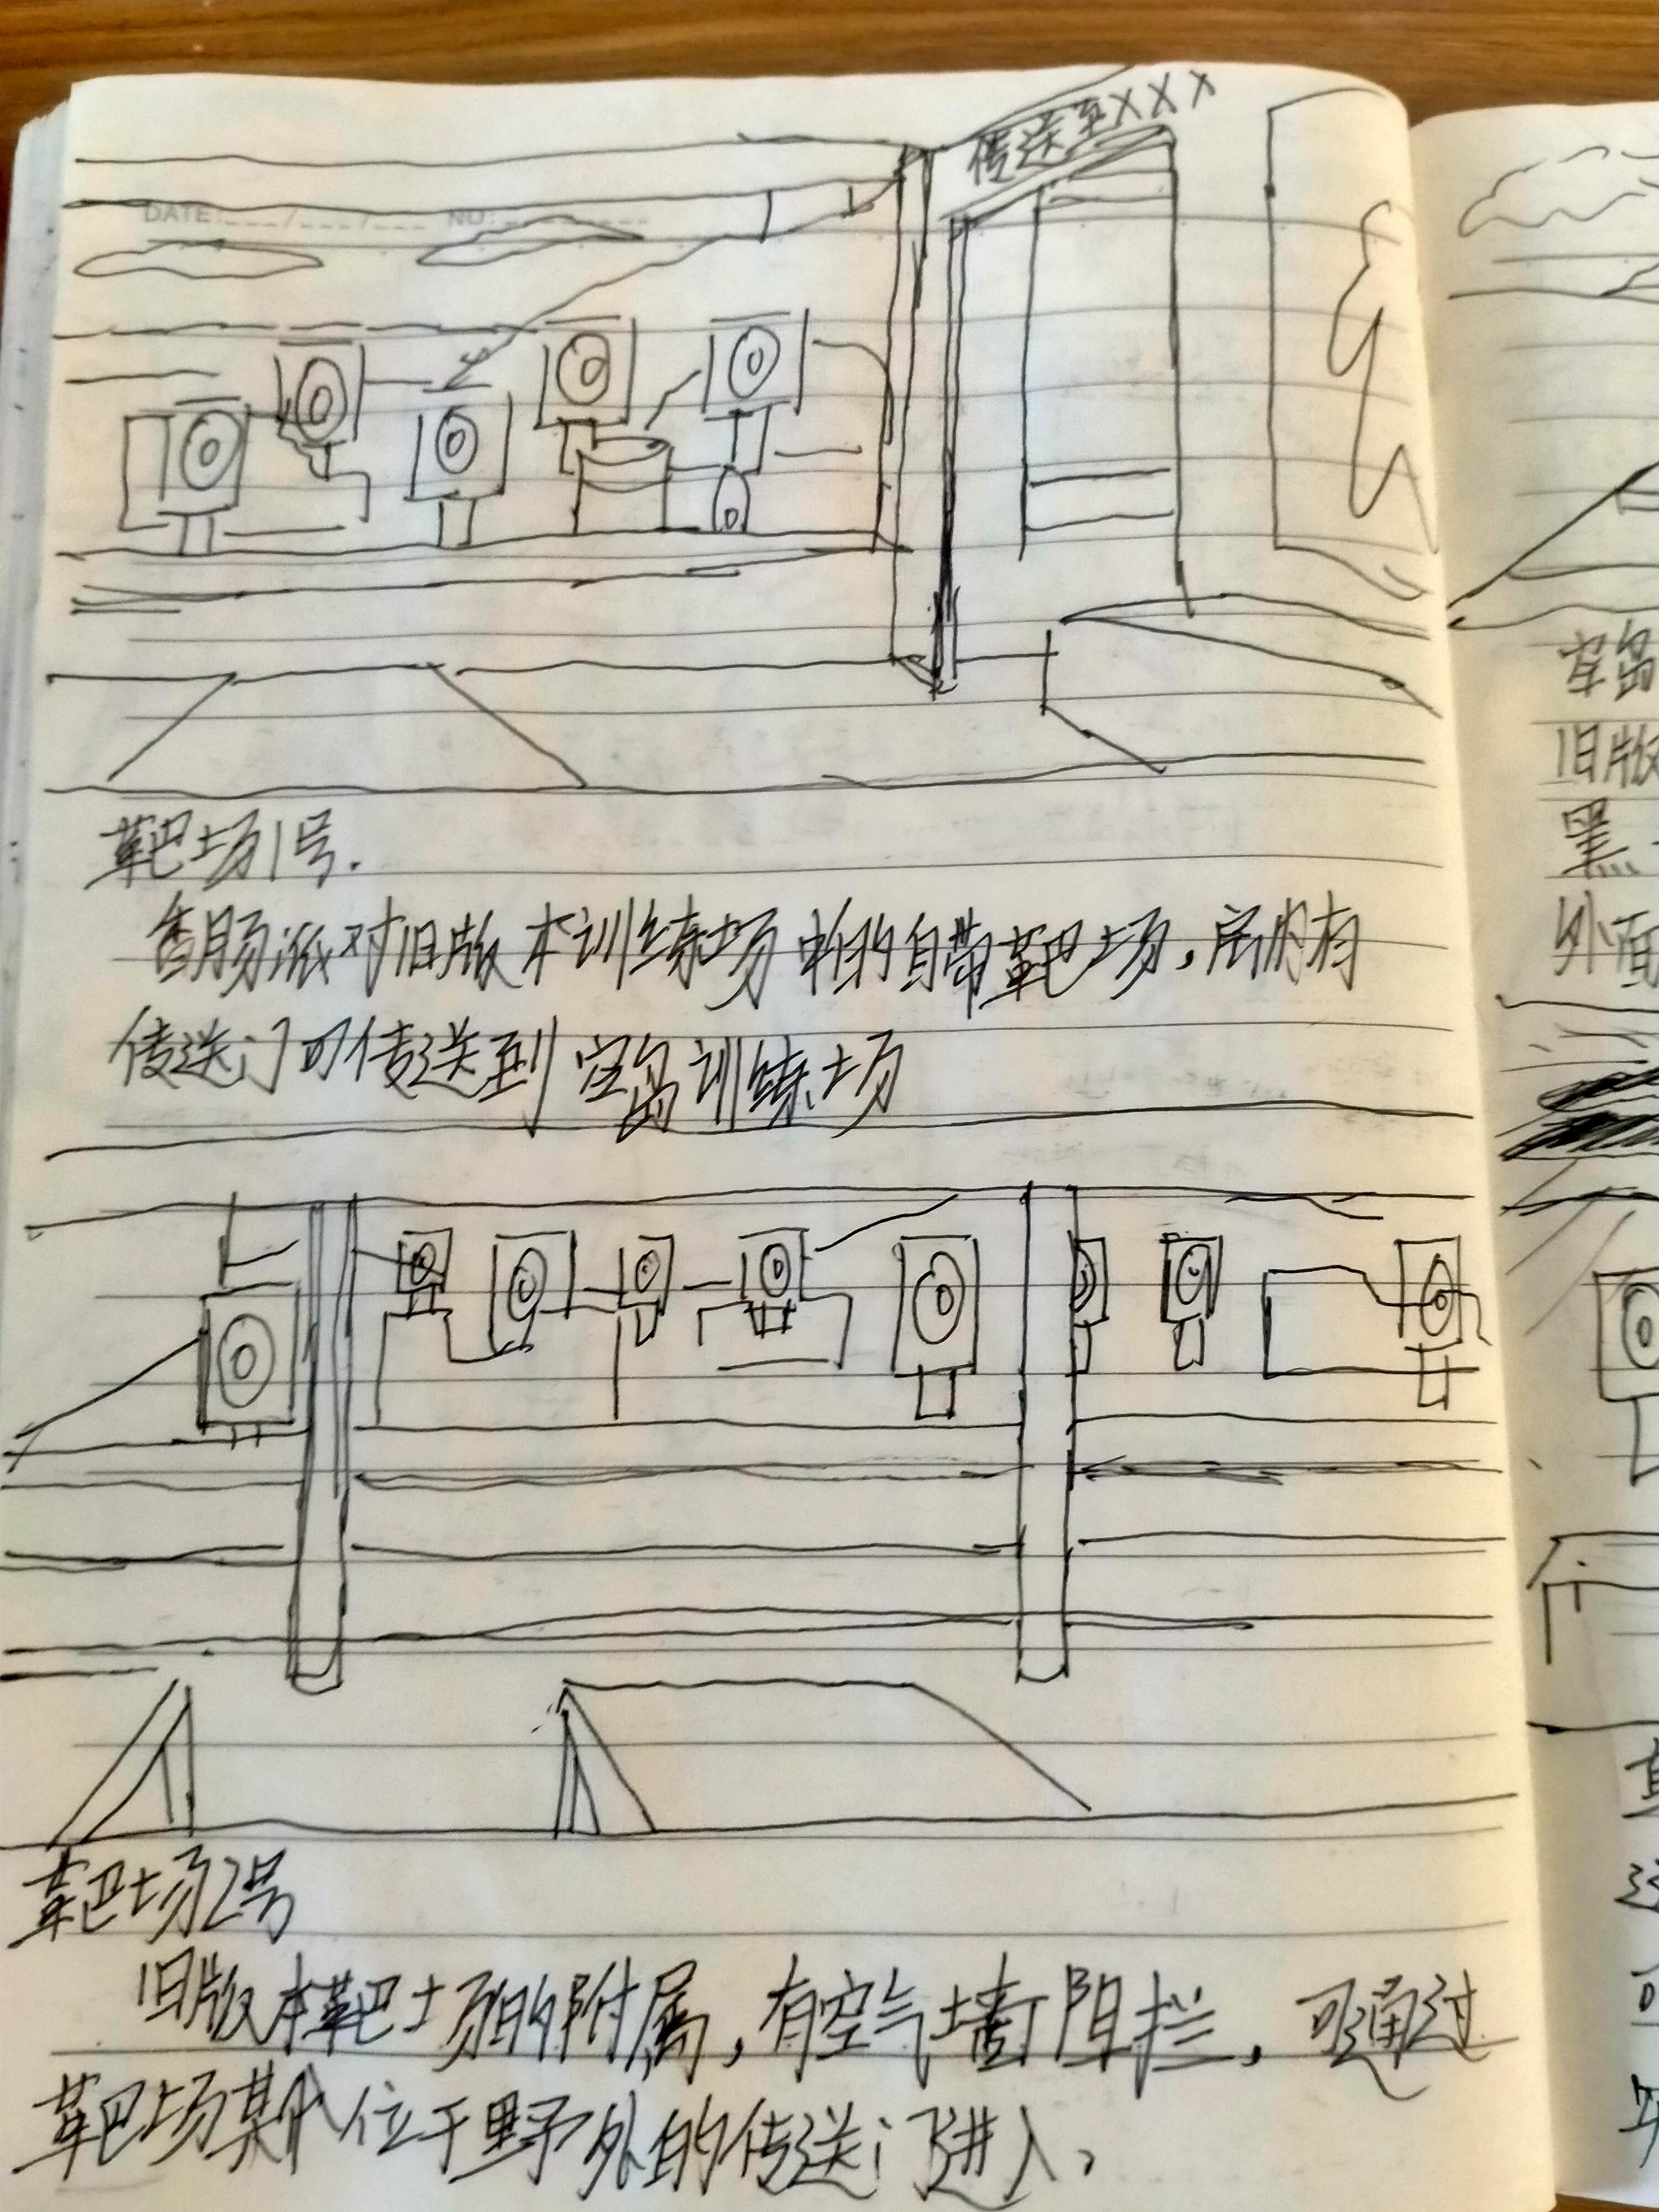 传送至XXX
DATE: ___/___/___ NO: ______
靶场1号.
香肠派对旧版本训练场中的自带靶场,房内有
传送门可传送到宝岛训练场
靶场2号
旧版本靶场的附属,有空气墙阻拦,可通过
靶场某个位于野外的传送门进入,
草岛
旧版
黑
外面